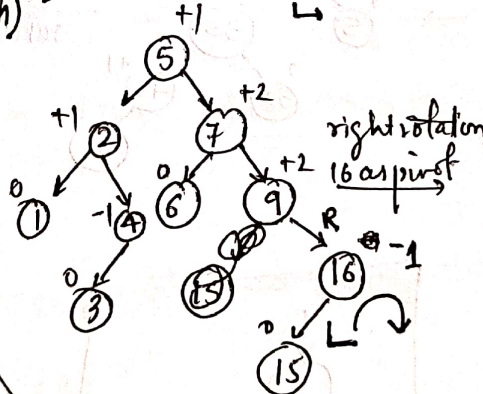 h)
+1
5
+1
2
+2
7
right rotation
16 as pivot
0
1
-1
4
0
6
+2
9
R
0
3
15
16
-1
0
15
L